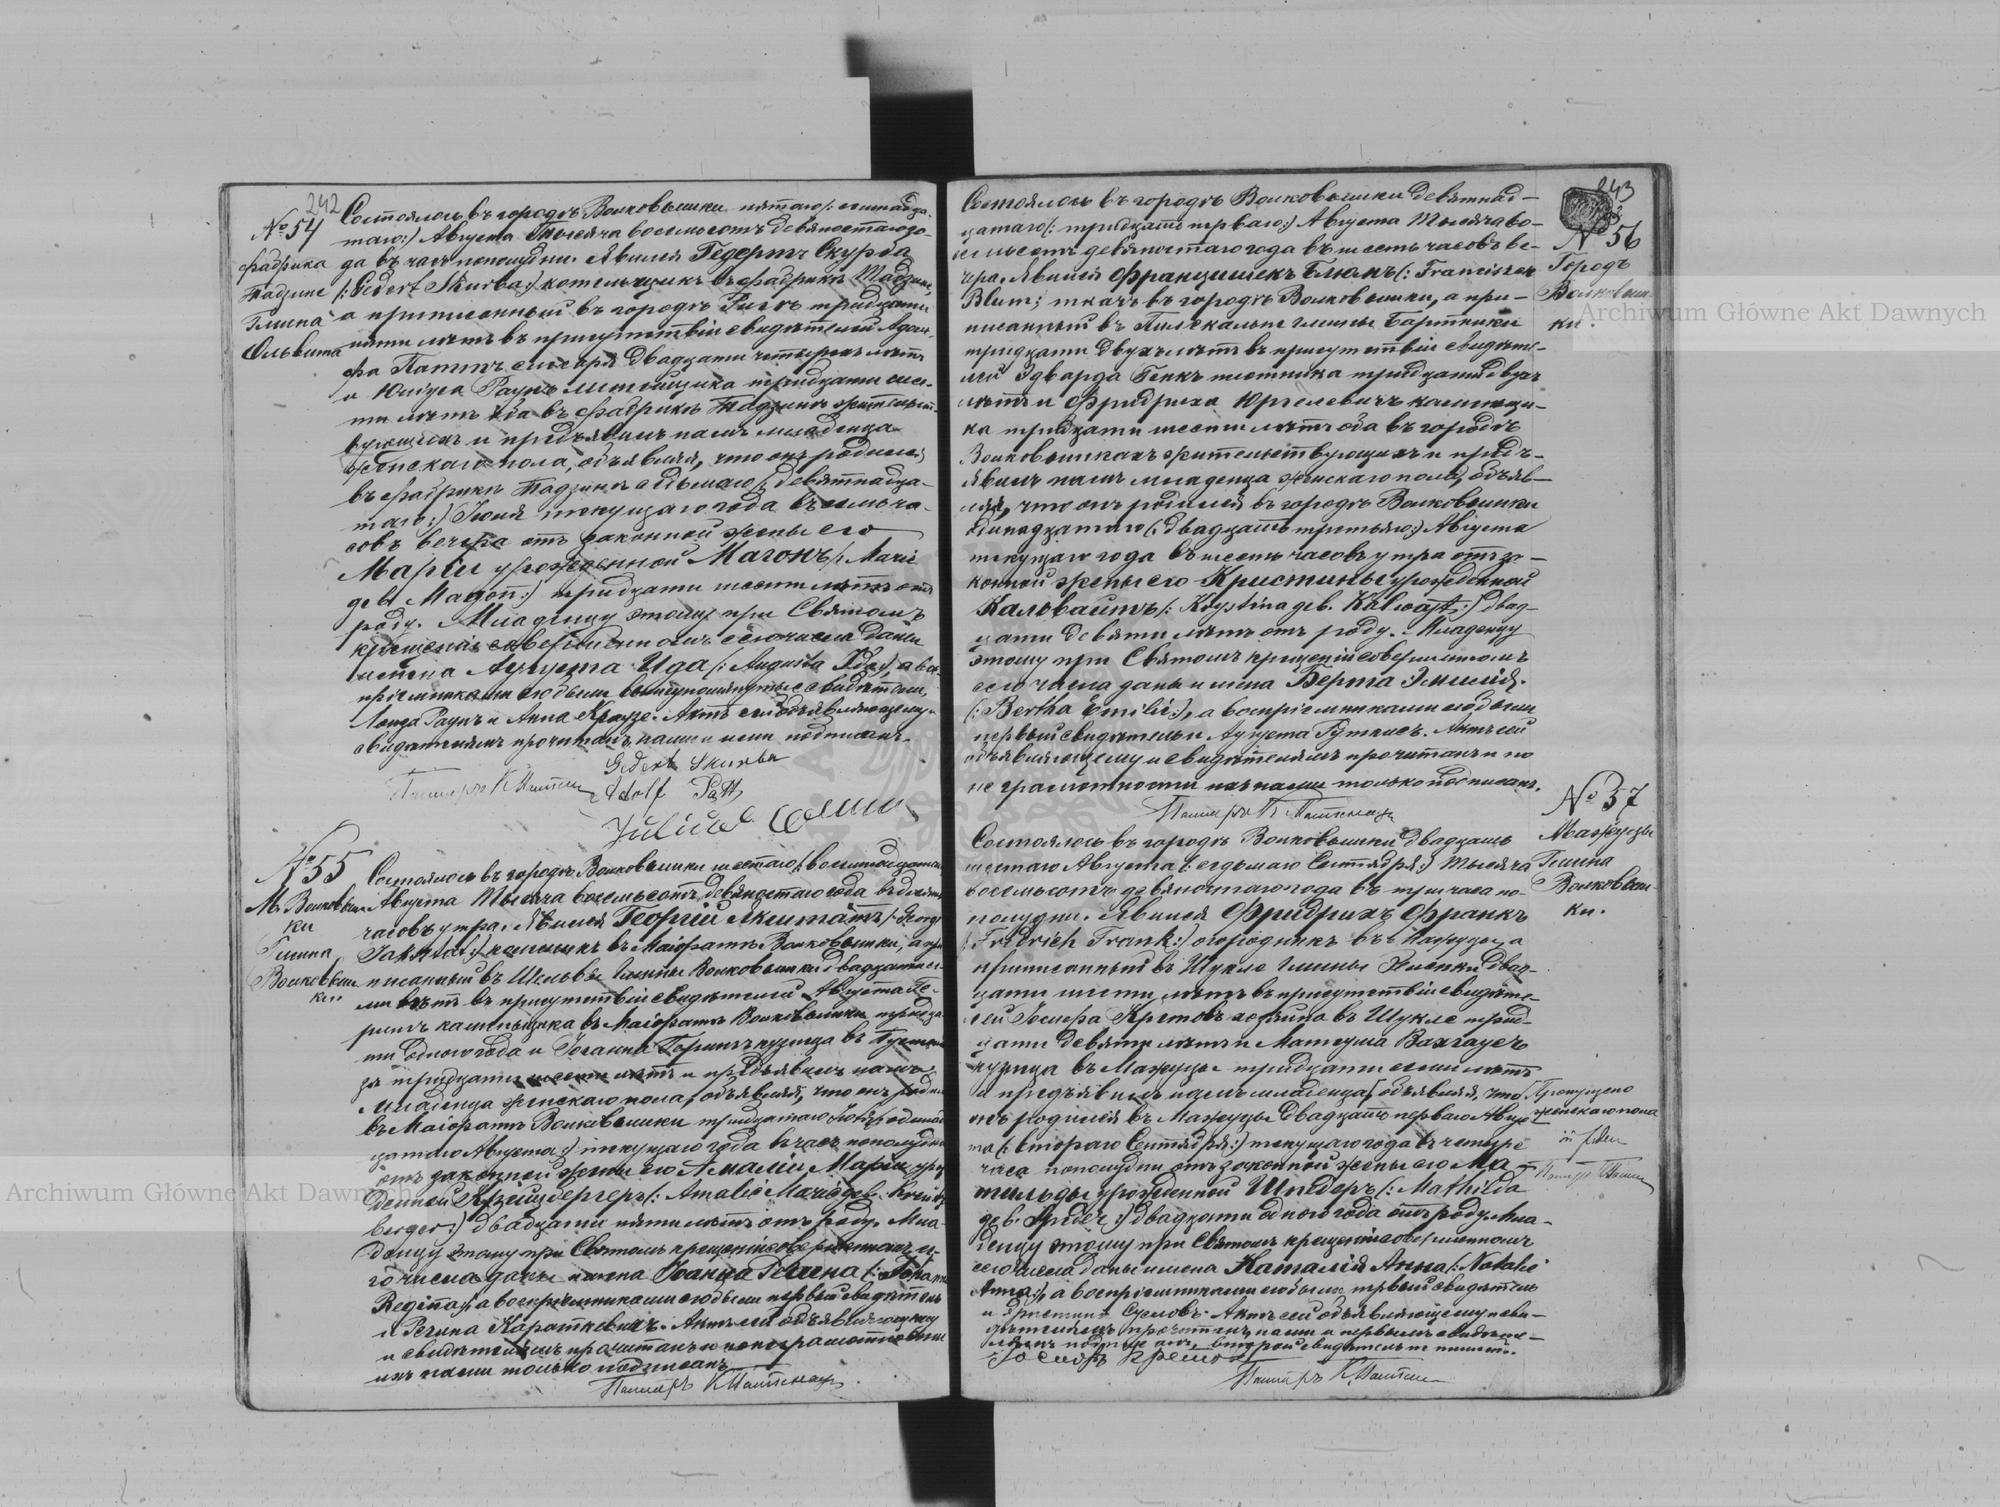 242
№ 54
фабрика
Тадзине
Гмина
Ольвита
Состоялось въ городѣ Волковышки пятаго (: семнадца-
таго:) Августа Тысяча восемьсотъ девяностаго го-
да въ часъ пополудни. Явился Гедертъ Скурба
(: Gedert Skurba:) котельщикъ въ фабрикѣ Тадзине,
а приписанный въ городѣ Ригѣ тридцати
пяти лѣтъ въ присутствіи свидѣтелей Адоль-
фа Паттъ слесаря двадцати четырехъ лѣтъ
и Юлiуса Раунъ тридцати
лѣтъ оба въ фабрикѣ Тадзине жительст-
вующихъ и предъявилъ намъ младенца
женскаго пола, объявляя, что онъ родился
въ фабрикѣ Тадзине седьмаго (: девятнадца-
таго:) Іюля текущаго года въ семь ча-
совъ вечера отъ законной жены его
Маріи урожденной Магонъ (: Marie
geb. Magon:) тридцати шести лѣтъ отъ
роду. Младенцу этому при Святомъ
крещеніи совершенномъ сего числа даны
имена Августа Ида (: Augusta Ida:), а вос-
пріемниками были вышеупомянутые свидѣтели,
Раунъ и Анна Краузе. Актъ сей объявляющему и
свидѣтелямъ прочитанъ, нами и ими подписанъ.
Gedert Skurba
Adolf Patt
Julius
№ 55
М. Волковыш-
ки
Гмина
Волковыш-
ки
Состоялось въ городѣ Волковышки шестаго (: восемнадцатаго:)
Августа Тысяча восемьсотъ девяностаго года въ девять
часовъ утра. Явился Георгій Акштатъ (: Georg
Jakstat:) въ Маіоратѣ Волковышки, а при-
писанный въ Шельвы Гмины Волковышки двадцати се-
ми лѣтъ въ присутствіи свидѣтелей Августа Ге-
ринъ каменьщика въ Маіоратѣ Волковышки тридца-
ти одного года и Іоганна Геринъ кузнеца въ
тридцати шести лѣтъ и предъявилъ намъ
младенца женскаго пола, объявляя, что онъ родился
въ Маіоратѣ Волковышки тридцатаго Іюля (: одинад-
цатаго Августа:) текущаго года въ часъ пополудни
отъ законной жены его Амаліи Маріи уро-
жденной Крейцбергеръ (: Amalie Marie geb. Kreutz-
berger:) двадцати пяти лѣтъ отъ роду. Мла-
денцу этому при Святомъ крещеніи совершенномъ се-
го числа даны имена Іоанна Регина (: Johanna
Regina:), а воспріемниками были первый свидѣтель
и Регина Короткевичъ. Актъ сей объявляющему
и свидѣтелямъ прочитанъ и по неграмотности
ихъ нами только подписанъ.
243
№ 56
Городъ
Волковыш-
ки.
Состоялось въ городѣ Волковышки девятнад-
цатаго (: тридцать перваго:) Августа Тысяча во-
семьсотъ девяностаго года въ шесть часовъ ве-
чера. Явился Францишекъ Блюмъ (: Franciszek
Blum:) ткачъ въ городѣ Волковышки, а при-
писанный въ Гмины Бартники
тридцати двухъ лѣтъ въ присутствіи свидѣте-
лей Эдварда Генкъ плотника тридцати двухъ
лѣтъ и Фридриха Юргелевичъ каменщи-
ка тридцати шести лѣтъ оба въ городѣ
Волковышкахъ жительствующихъ и предъ-
явилъ намъ младенца женскаго пола, объяв-
ляя, что онъ родился въ городѣ Волковышки
одинадцатаго (: двадцать третьяго:) Августа
текущаго года въ шесть часовъ утра отъ за-
конной жены его Кристины урожденной
Кальвайтъ (: Krystina geb. Kalwajt:) двад-
цати девяти лѣтъ отъ роду. Младенцу
этому при Святомъ крещеніи совершенномъ
сего числа даны имена Берта Эмилія.
(: Bertha Emilie:), а воспріемниками были
первый свидѣтель и Августа Гуткнес. Актъ сей
объявляющему и свидѣтелямъ прочитанъ и по
неграмотности ихъ нами только подписанъ.
№ 57
Мажуцы
Гмина
Волковыш-
ки.
Состоялось въ городѣ Волковышки двадцать
шестаго Августа (: седьмаго Сентября:) Тысяча
восемьсотъ девяностаго года въ три часа по-
полудни. Явился Фридрихъ Франкъ
(: Fridrich Frank:) огородникъ въ Мажуцы, а
приписанный въ Шукле Гмины двад-
цати шести лѣтъ въ присутствіи свидѣте-
лей Іосифа хозяина въ Шукле трид-
цати девяти лѣтъ и Матеуша
кузнеца въ Мажуцы тридцати семи лѣтъ
и предъявилъ намъ младенца объявляя, что
онъ родился въ Мажуцы двадцать перваго Авгус-
та (: втораго Сентября:) текущаго года въ четыре
часа пополудни отъ законной жены его Ма-
тильды урожденной Шпидеръ (: Mathilda
geb. Spider:) двадцати одного года отъ роду. Мла-
денцу этому при Святомъ крещеніи совершенномъ
сего числа даны имена Наталія Анна (: Natalie
Anna:), а воспріемниками были первый свидѣтель
и Сусловъ. Актъ сей объявляющему и сви-
дѣтелямъ прочитанъ нами и первымъ свидѣте-
лемъ подписанъ, второй свидѣтель не пишетъ.
Пропущено
женскаго пола
Archiwum Główne Akt Dawnych
Archiwum Główne Akt Dawnych